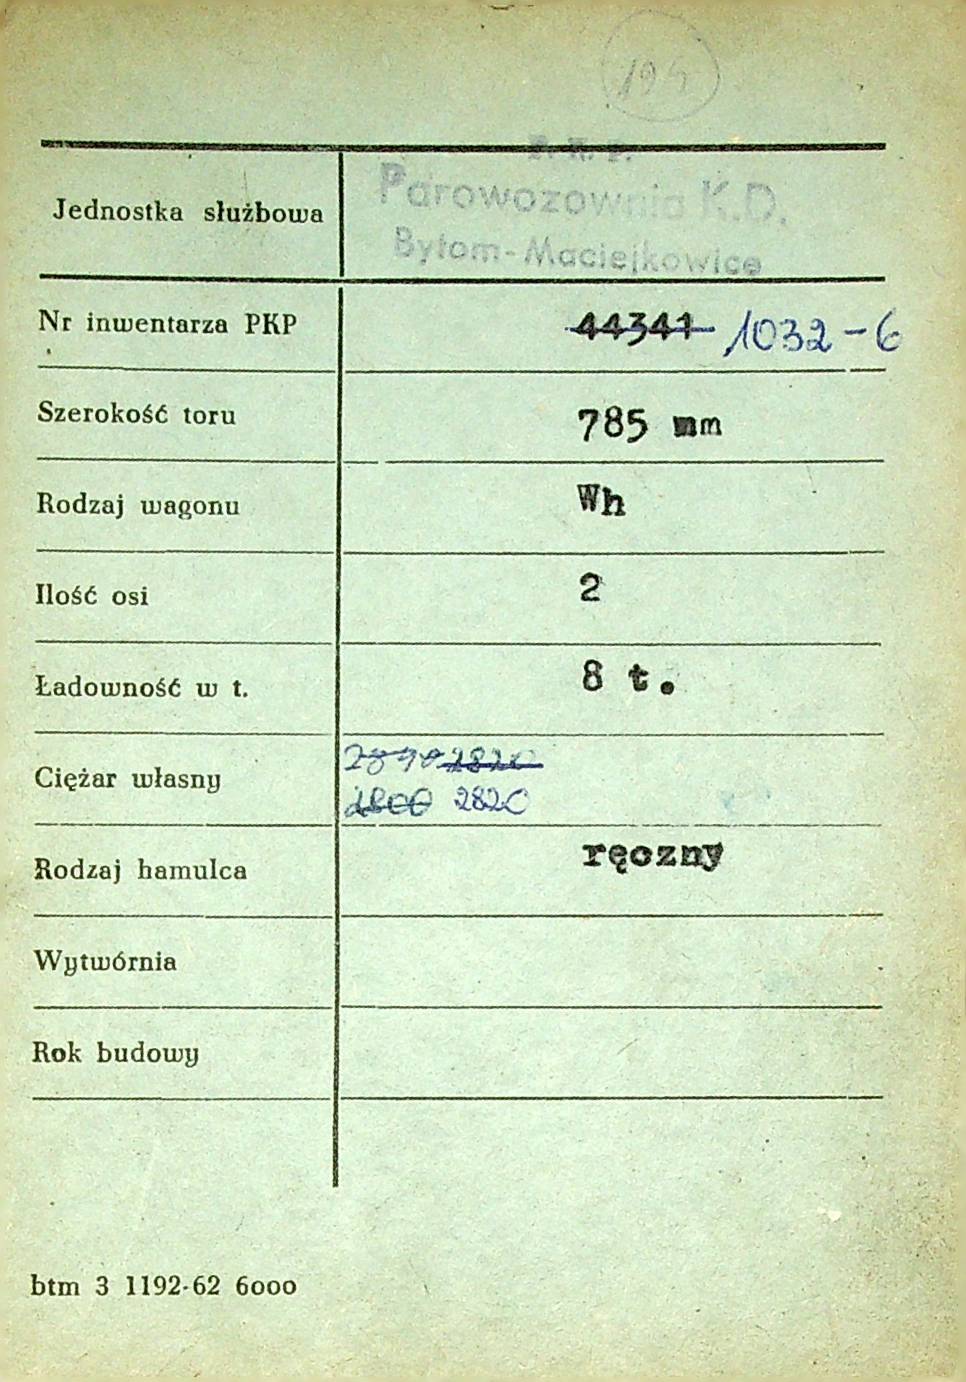 194
P. K. P.
Jednostka służbowa Parowozownia K.D.
Bytom-Maciejkowice
Nr inwentarza PKP 44341 1032-6
Szerokość toru 785 mm
Rodzaj wagonu Wh
Ilość osi 2
Ładowność w t. 8 t.
2820
Ciężar własny
2800 2820
Rodzaj hamulca ręczny
Wytwórnia
Rok budowy
btm 3 1192-62 6000